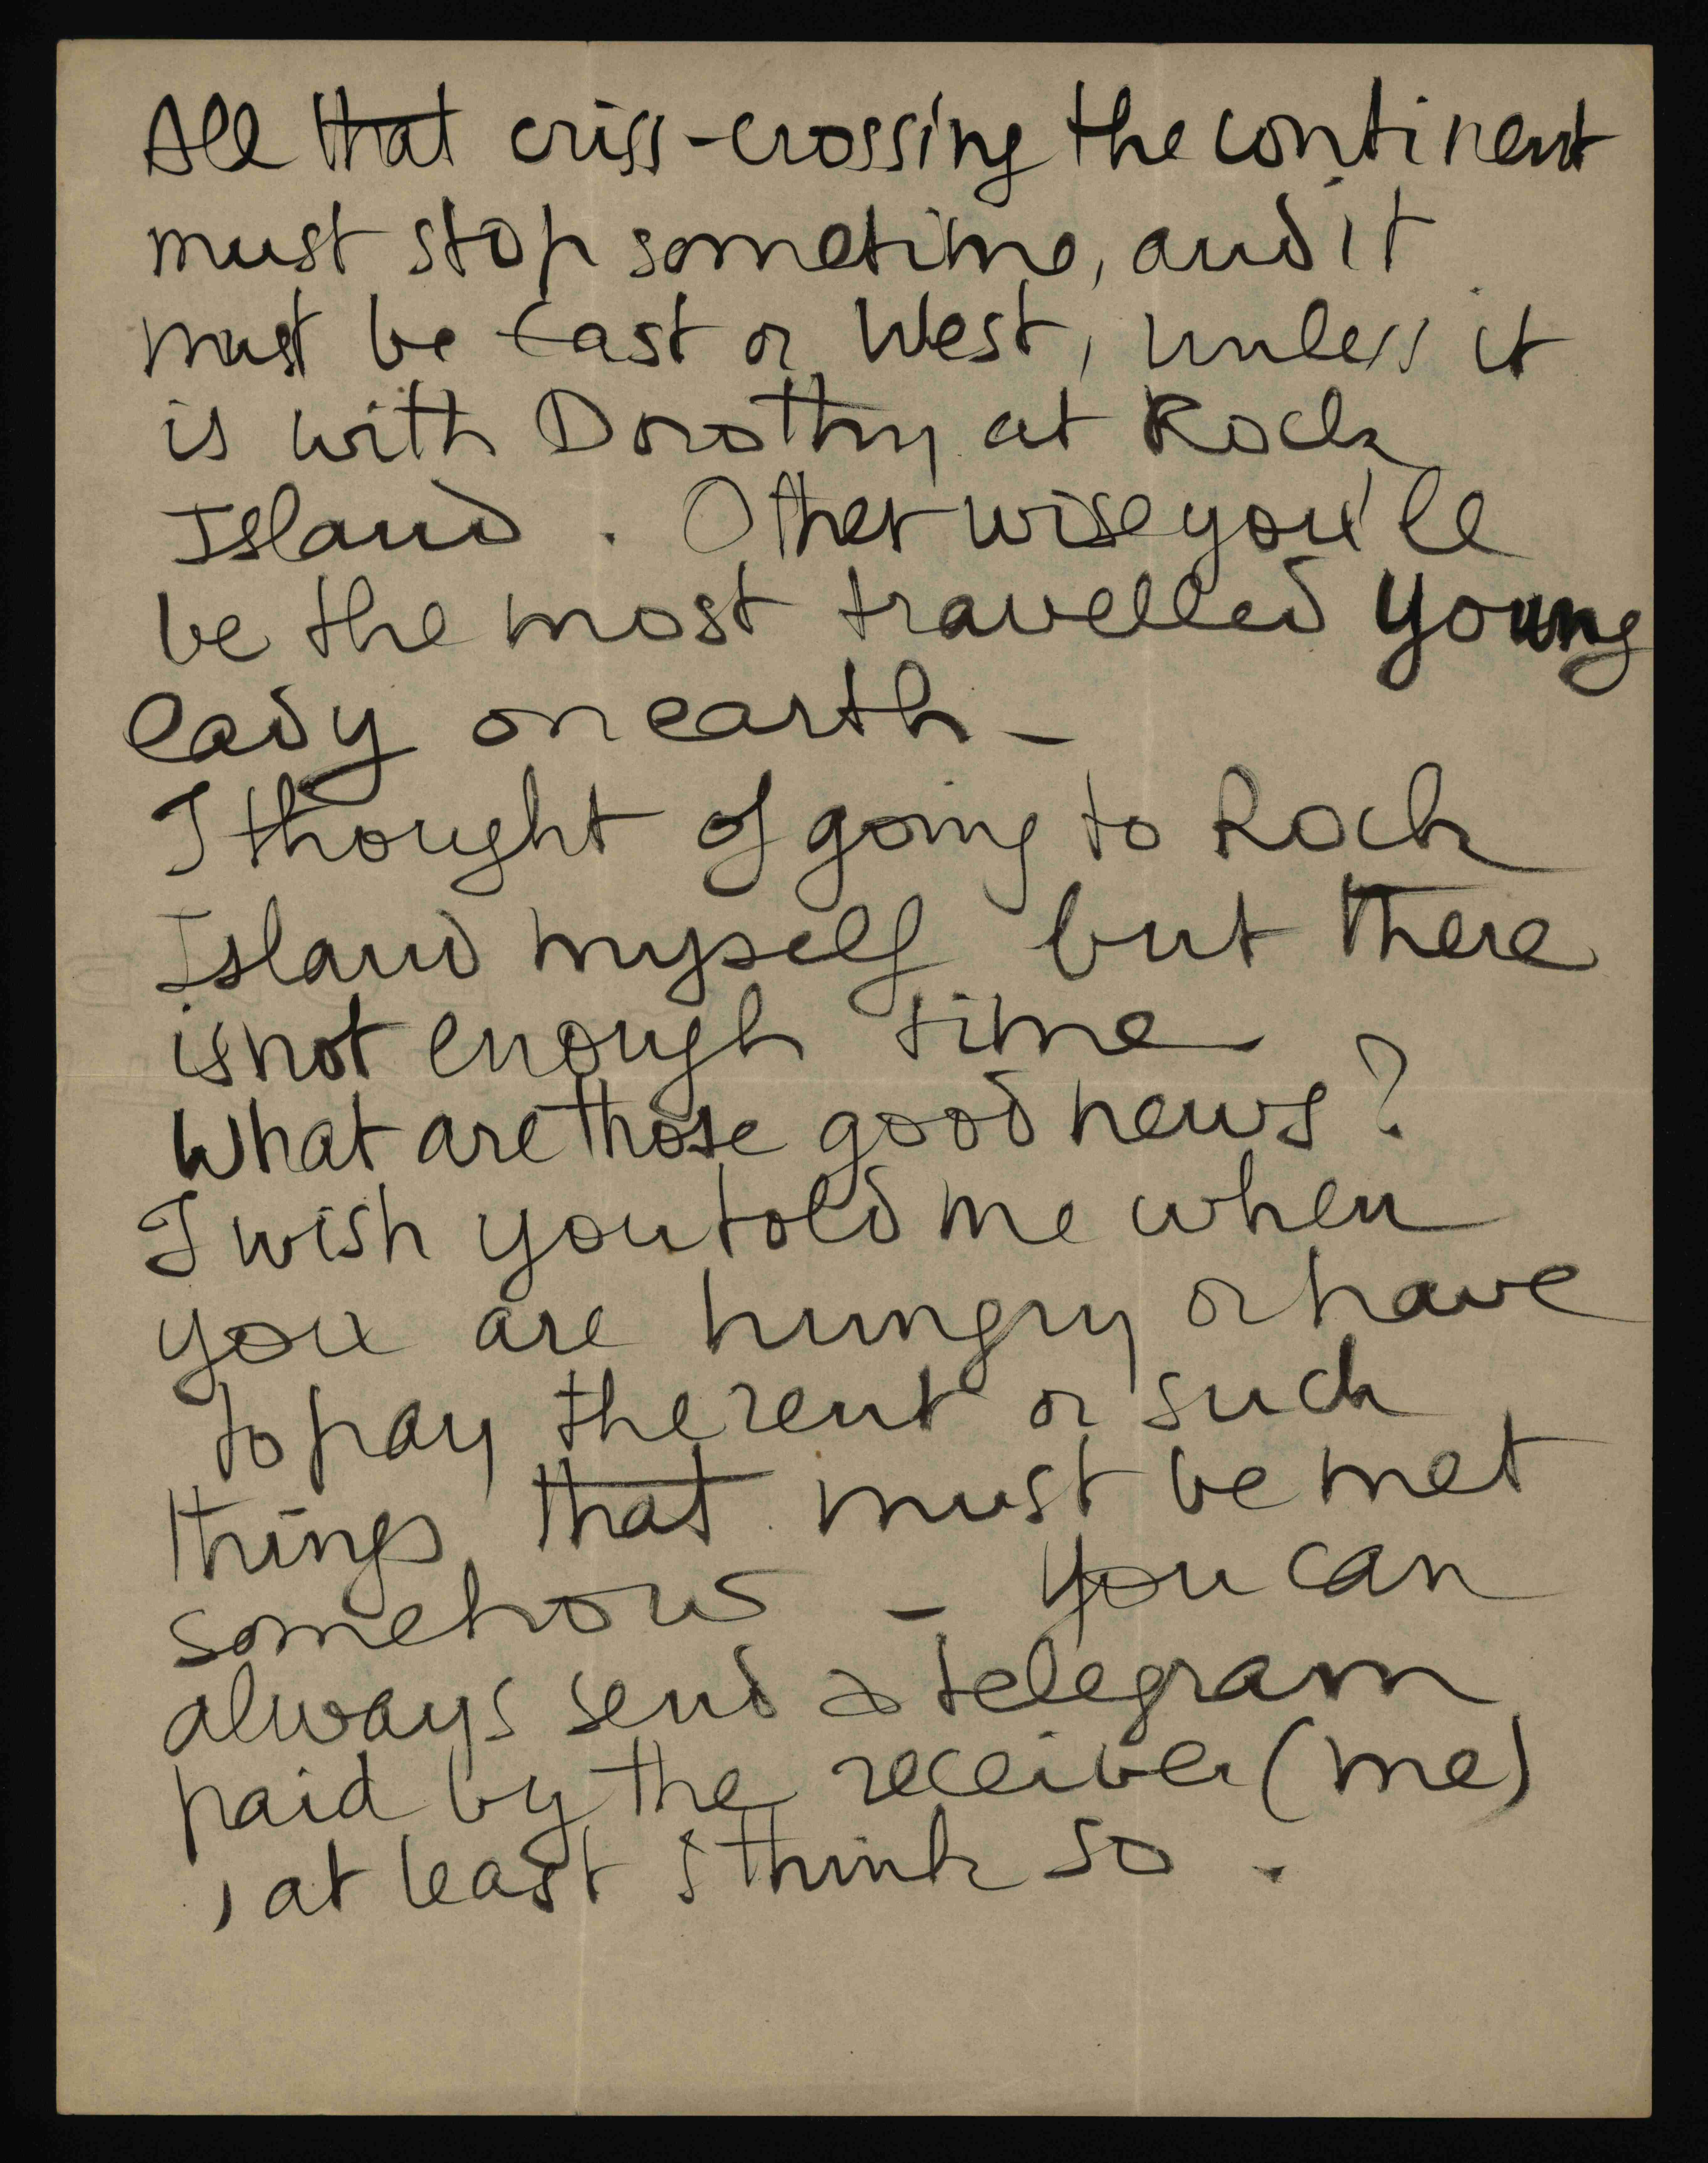 All that criss-crossing the continent
must stop sometime, and it
must be East or West, unless it
is with Dorothy at Rock
Island. Otherwise you'll
be the most travelled young
lady on earth –
I thought of going to Rock
Island myself but there
is not enough time
What are those good news?
I wish you told me when
you are hungry or have
to pay the rent or such
things that must be met
somehow – You can
always send a telegram
paid by the receiver (me)
, at least I think so.